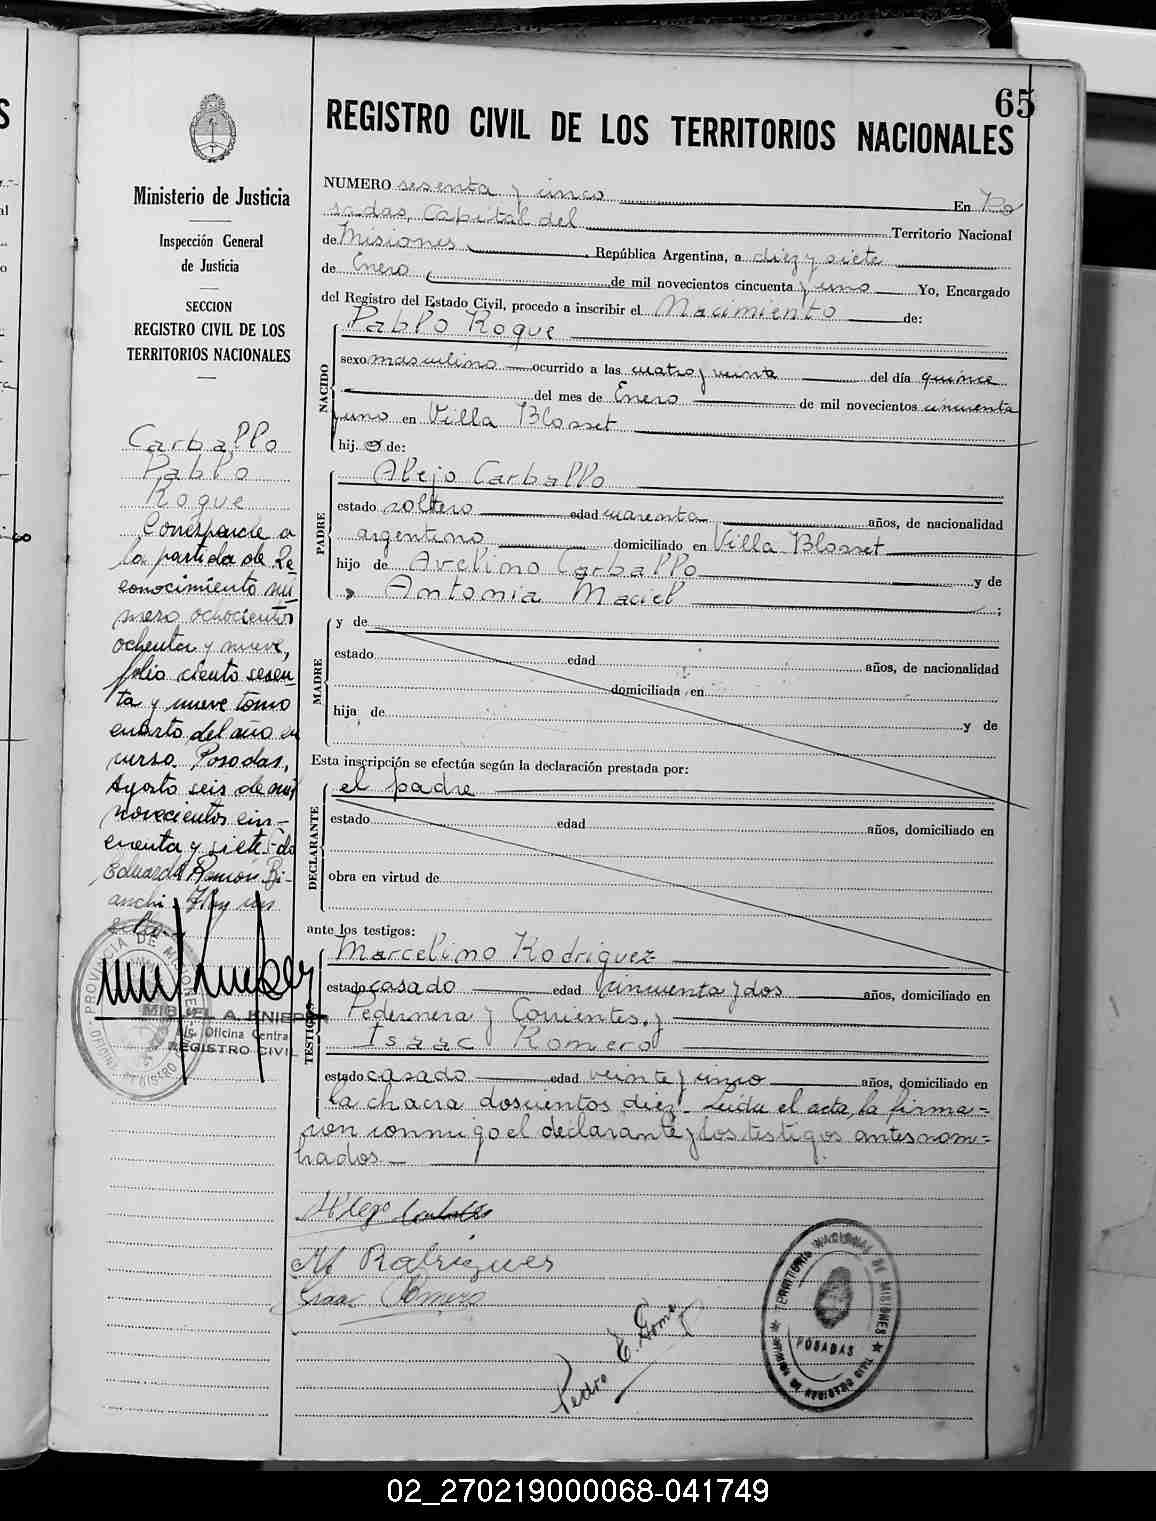 65
REGISTRO CIVIL DE LOS TERRITORIOS NACIONALES
Ministerio de Justicia
Inspección General
de Justicia
SECCION
REGISTRO CIVIL DE LOS
TERRITORIOS NACIONALES
Carballo
Pablo
Roque
Corresponde a
la partida de Re
conocimiento nú
mero ochocientos
ochenta y nueve,
folio ciento sesen
ta y nueve tomo
cuarto del año en
curso. Posadas,
Agosto seis de mil
novecientos cin-
cuenta y siete. fdo
Eduardo Ramón Bi-
anchi. Hay un
sello.
PROVINCIA DE MISIONES
MIGUEL A. KNIEPP
Oficina Central
REGISTRO CIVIL
NUMERO sesenta y cinco En Po
sadas, Capital del Territorio Nacional
de Misiones, República Argentina, a diez y siete
de Enero de mil novecientos cincuenta y uno Yo, Encargado
del Registro del Estado Civil, procedo a inscribir el Nacimiento de:
NACIDO
Pablo Roque
sexo masculino ocurrido a las cuatro y veinte del día quince
del mes de Enero de mil novecientos cincuenta
y uno en Villa Blosset
hij o de:
PADRE
Alejo Carballo
estado soltero edad cuarenta años, de nacionalidad
argentino domiciliado en Villa Blosset
hijo de Avelino Carballo y de
Antonia Maciel ;
MADRE
y de
estado edad años, de nacionalidad
domiciliada en
hija de y de
Esta inscripción se efectúa según la declaración prestada por:
DECLARANTE
el padre
estado edad años, domiciliado en
obra en virtud de
ante los testigos:
TESTIGOS
Marcelino Rodriguez
estado casado edad cincuenta y dos años, domiciliado en
Pedernera y Corrientes, y
Isaac Romero
estado casado edad veinte y cinco años, domiciliado en
la chacra doscientos diez. Leída el acta, la firma=
ron conmigo el declarante y los testigos antes nom=
brados.
Alejo Carballo
M Rodriguez
Isaac Romero
Pedro E. Gome
TERRITORIO NACIONAL DE MISIONES
POSADAS
02_270219000068-041749